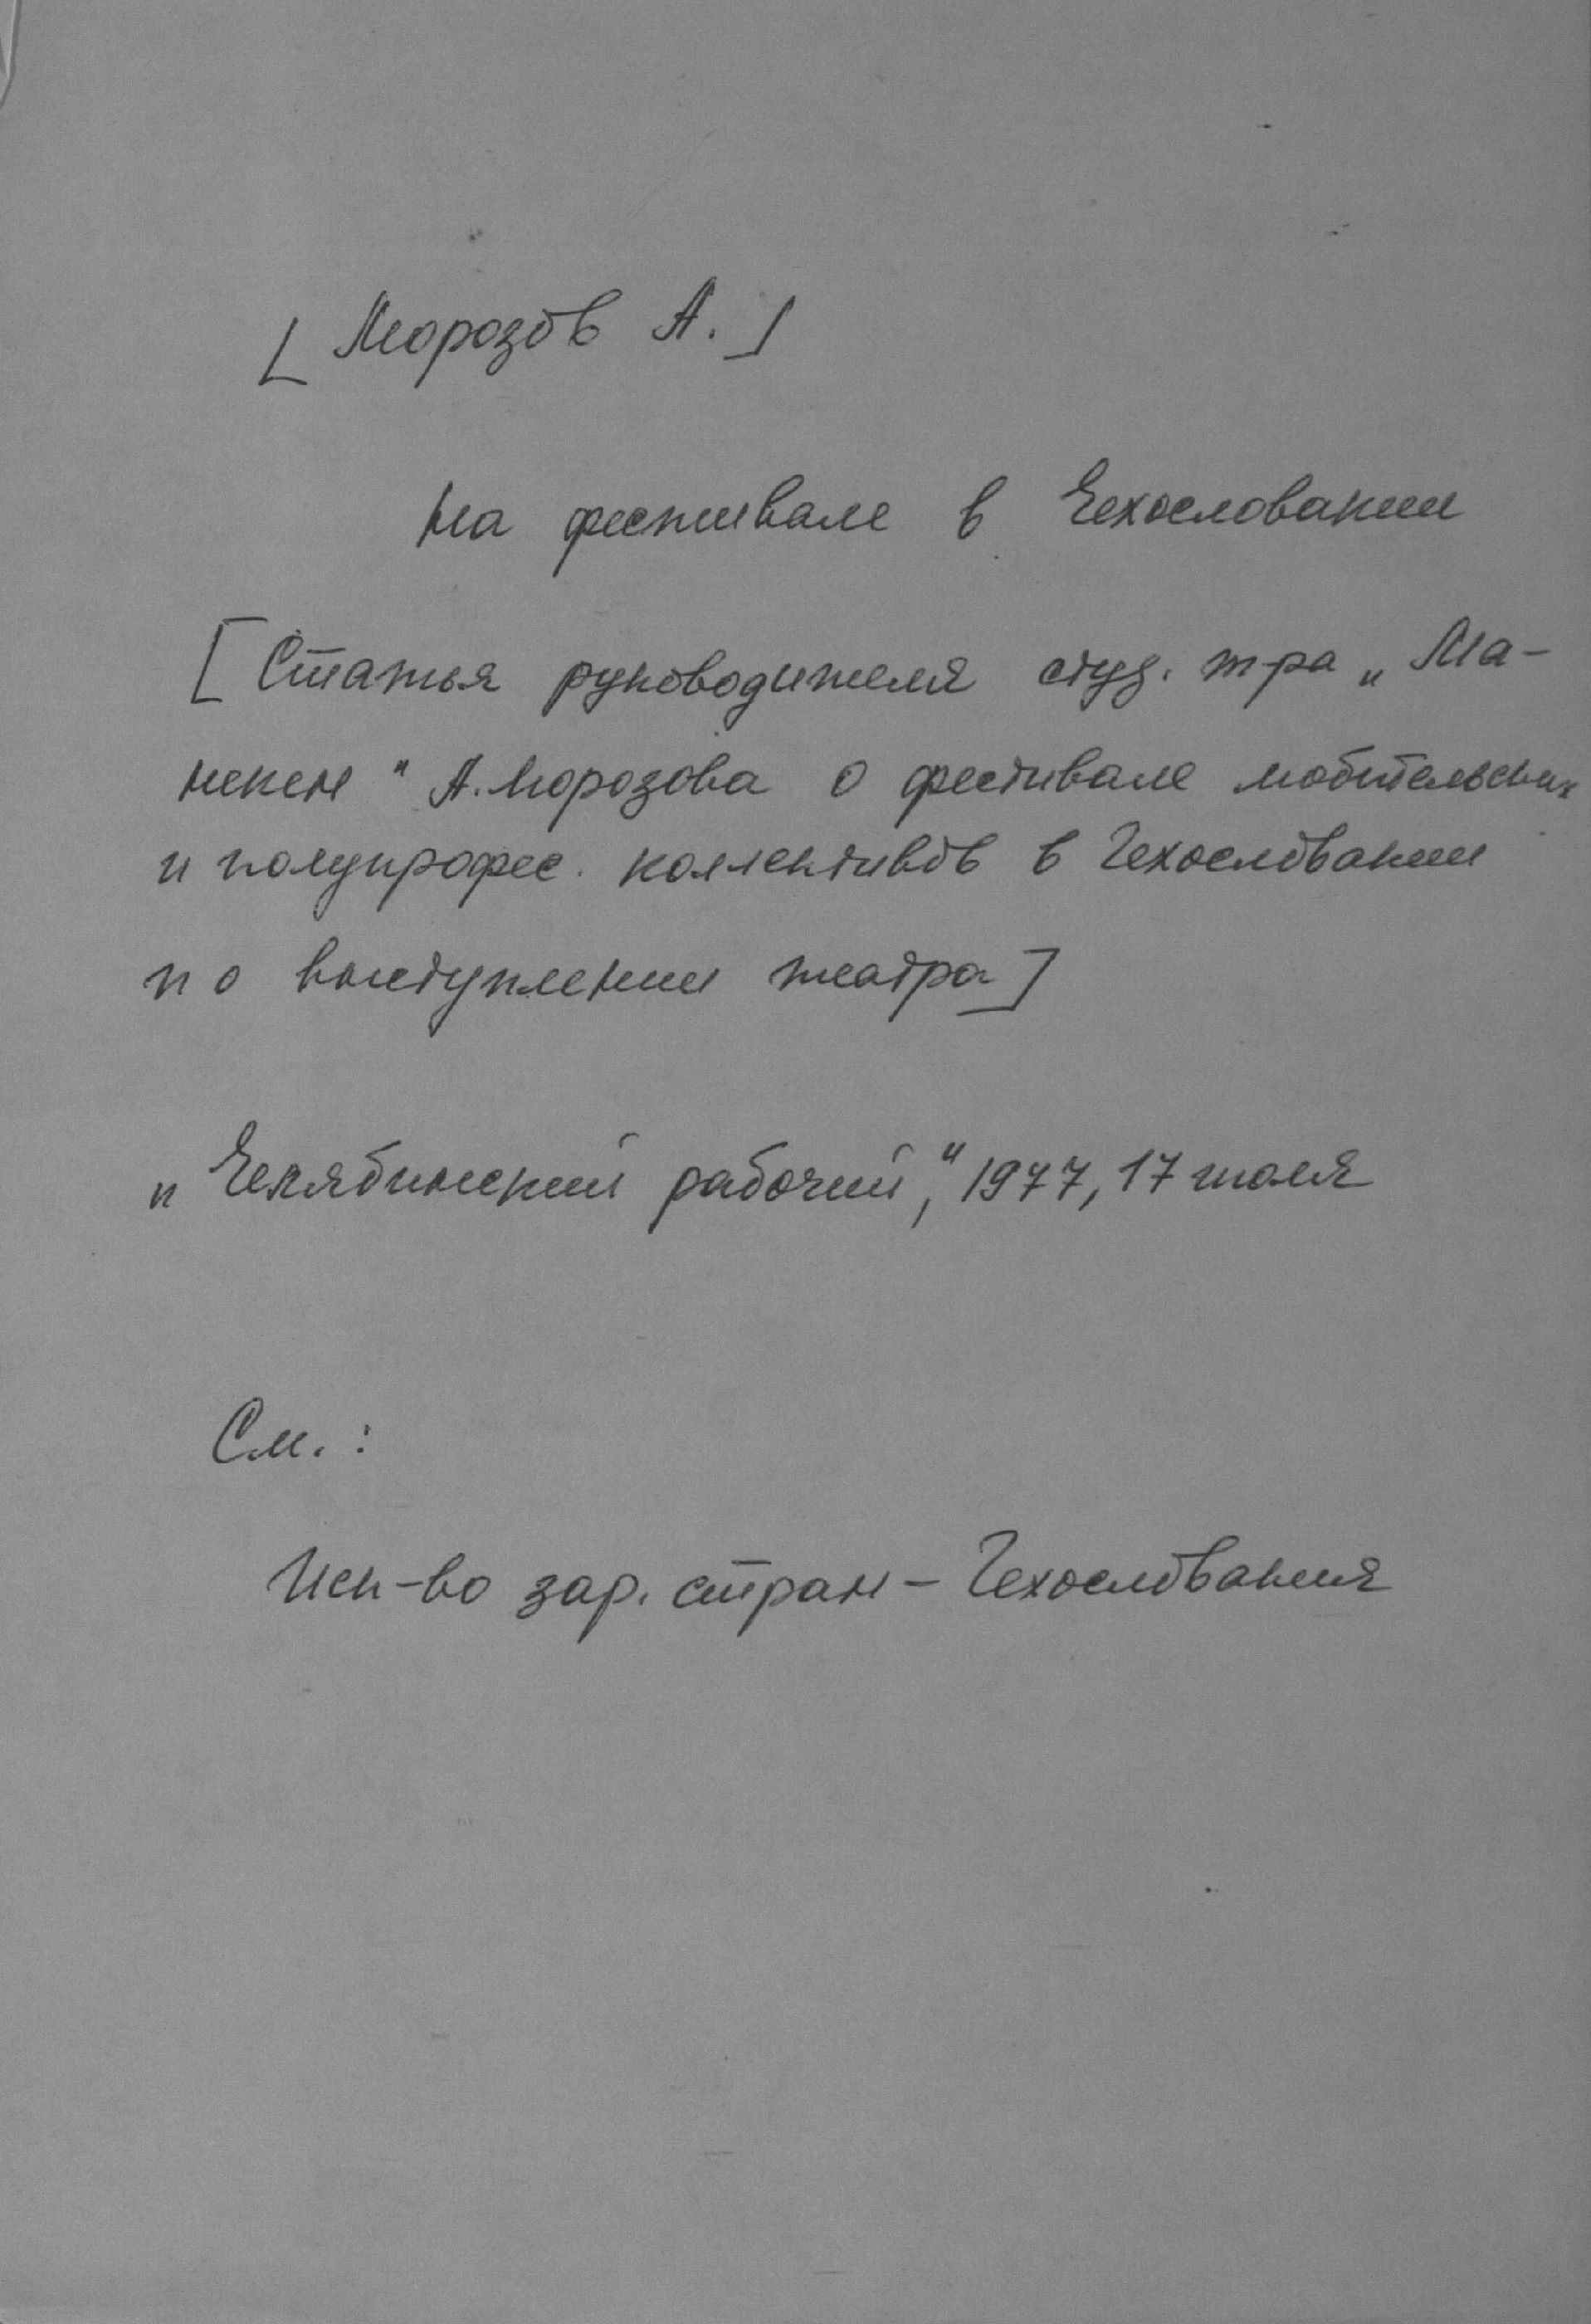 [Морозов А.]
На фестивале в Чехословакии
[Статья руководителя студ. т-ра „Ма-
некен" А. Морозова о фестивале любительских
и полупрофес. коллективов в Чехословакии
и о выступлении театра]
„Челябинский рабочий", 1977, 17 июля
См.:
Иск-во зар. стран – Чехословакия